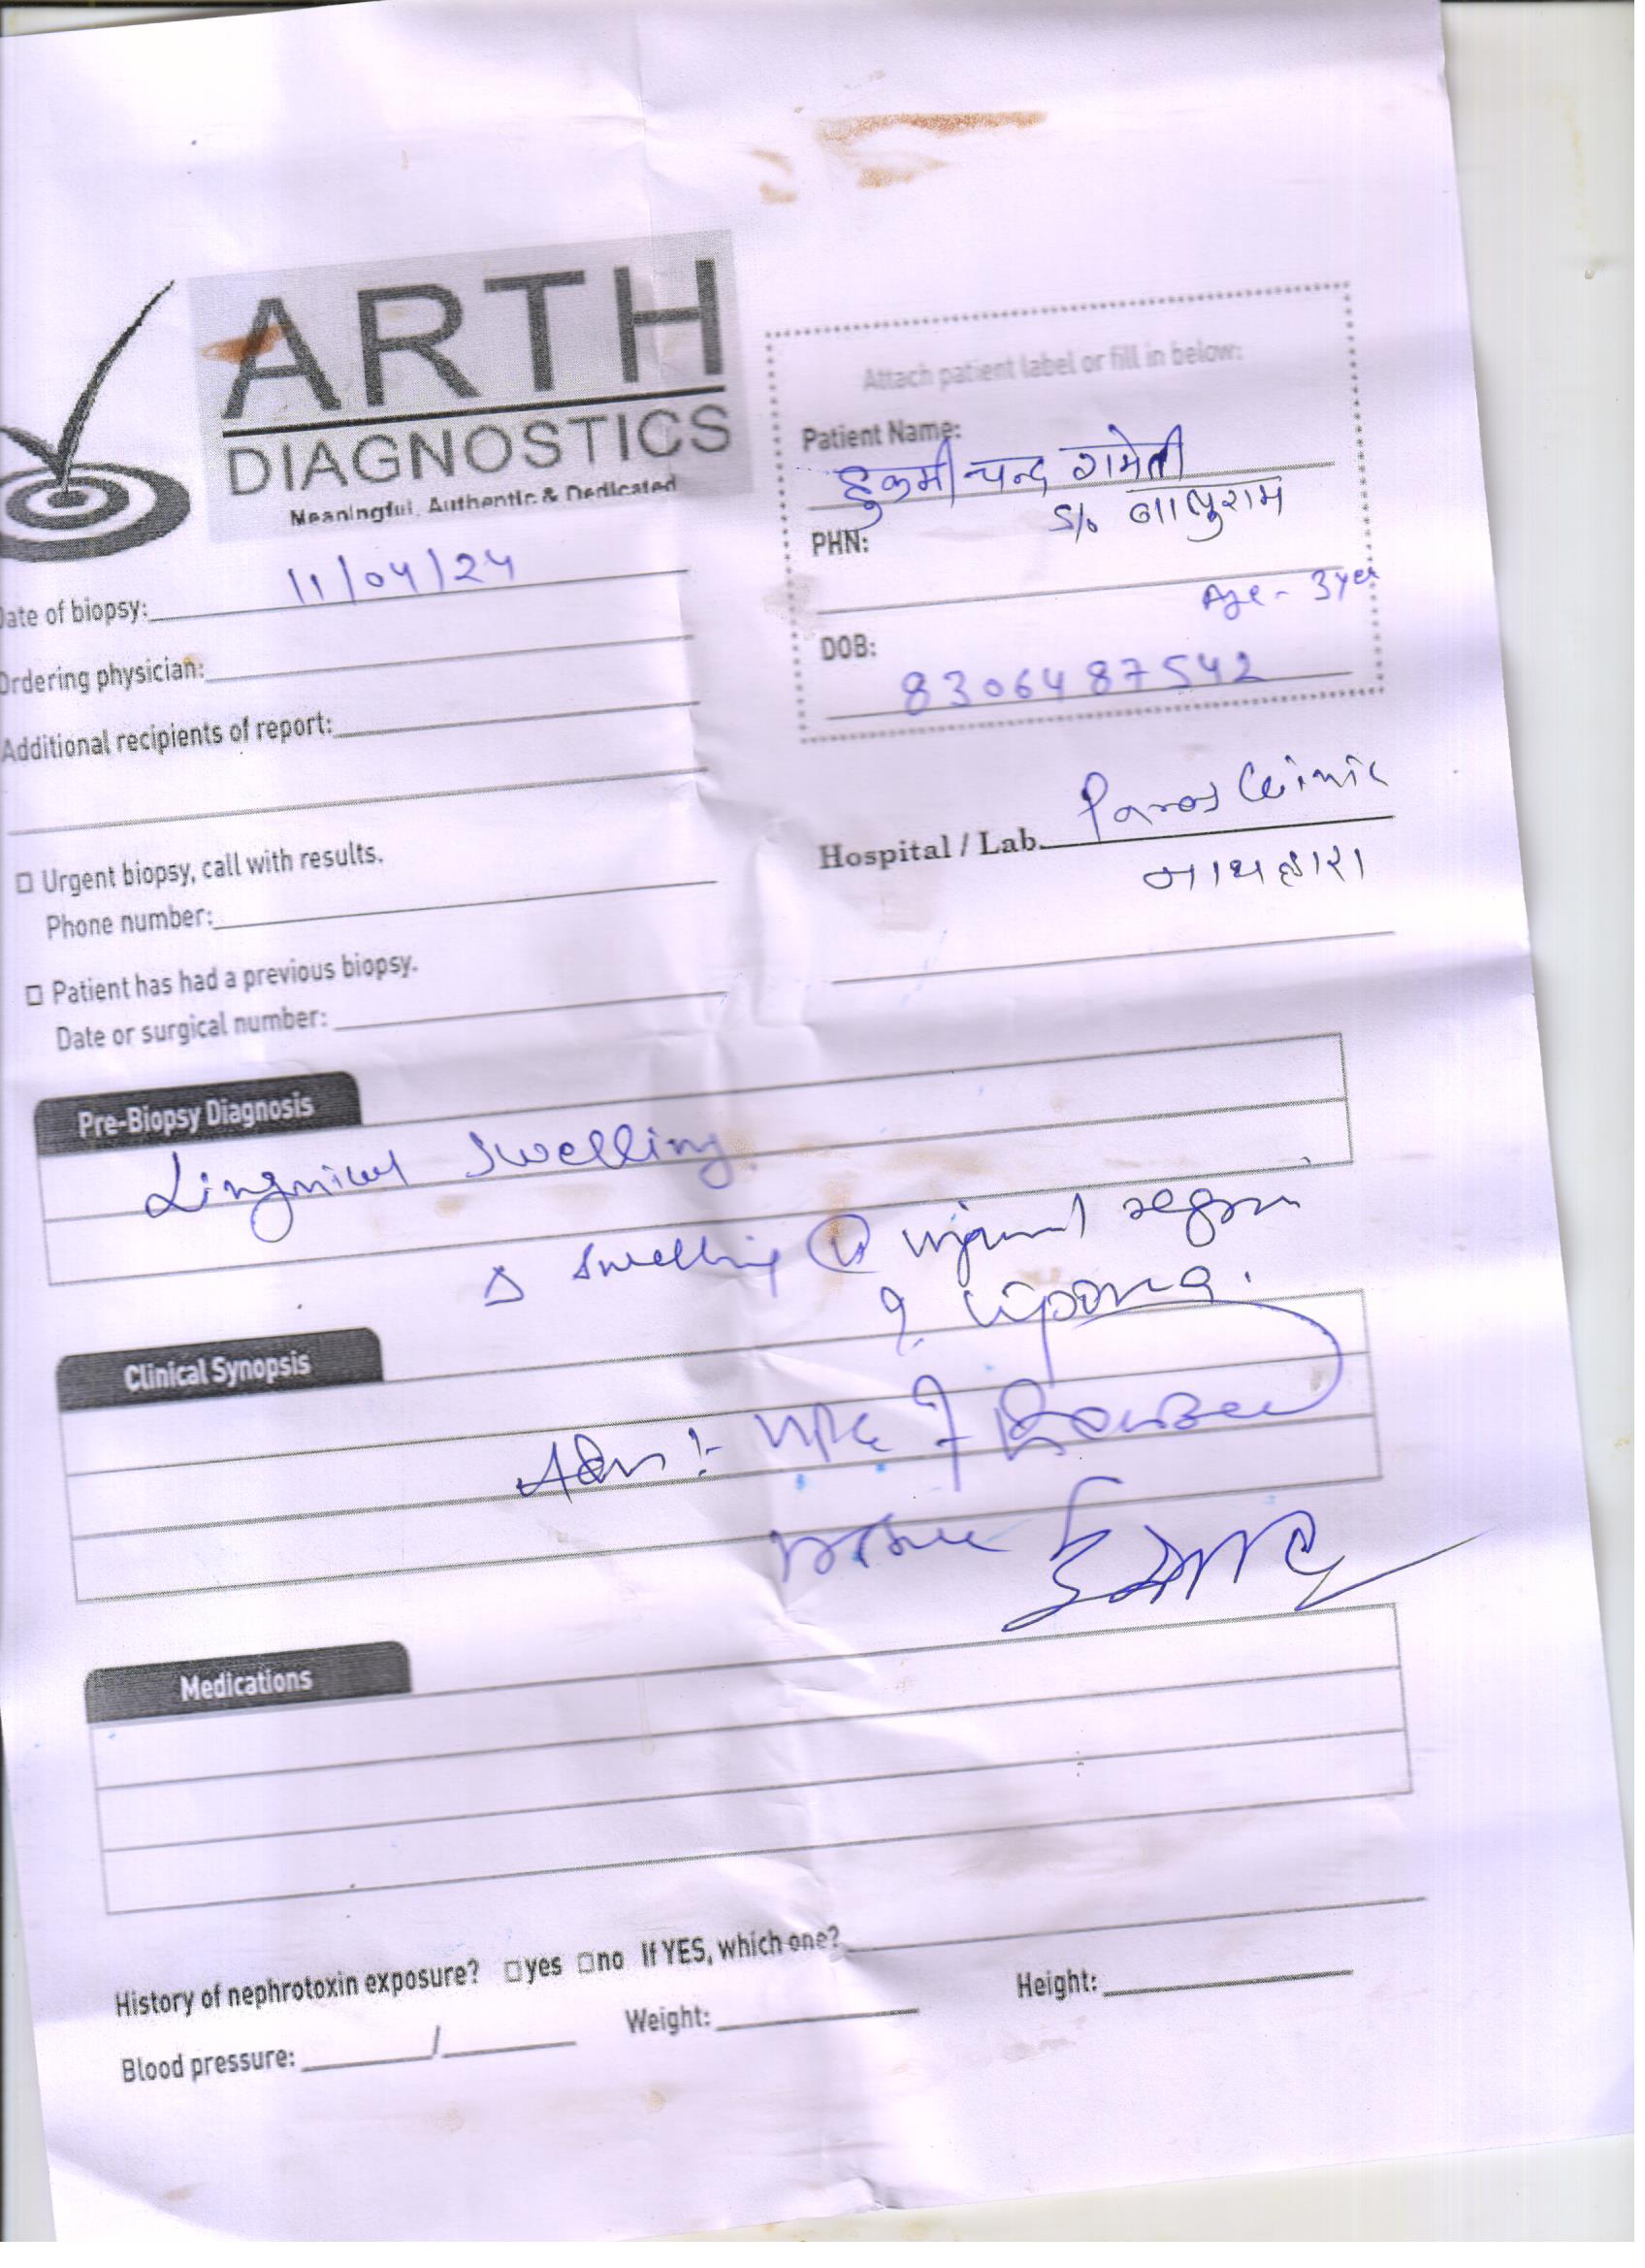 ARTH
DIAGNOSTICS
Meaningful, Authentic & Dedicated
Attach patient label or fill in below:
Patient Name:
हुकमी चन्द गमेती
S/o नाथुराम
PHN:
Age - 3 yer
DOB:
8306487542
Date of biopsy: 11/04/24
Ordering physician:
Additional recipients of report:
Hospital / Lab. Paras Clinic
नाथद्वारा
Urgent biopsy, call with results.
Phone number:
Patient has had a previous biopsy.
Date or surgical number:
Pre-Biopsy Diagnosis
Swelling
Δ Swelling region
? Lipoma.
Clinical Synopsis
Adv :-
Medications
History of nephrotoxin exposure? yes no If YES, which one?
Blood pressure: / Weight: Height: